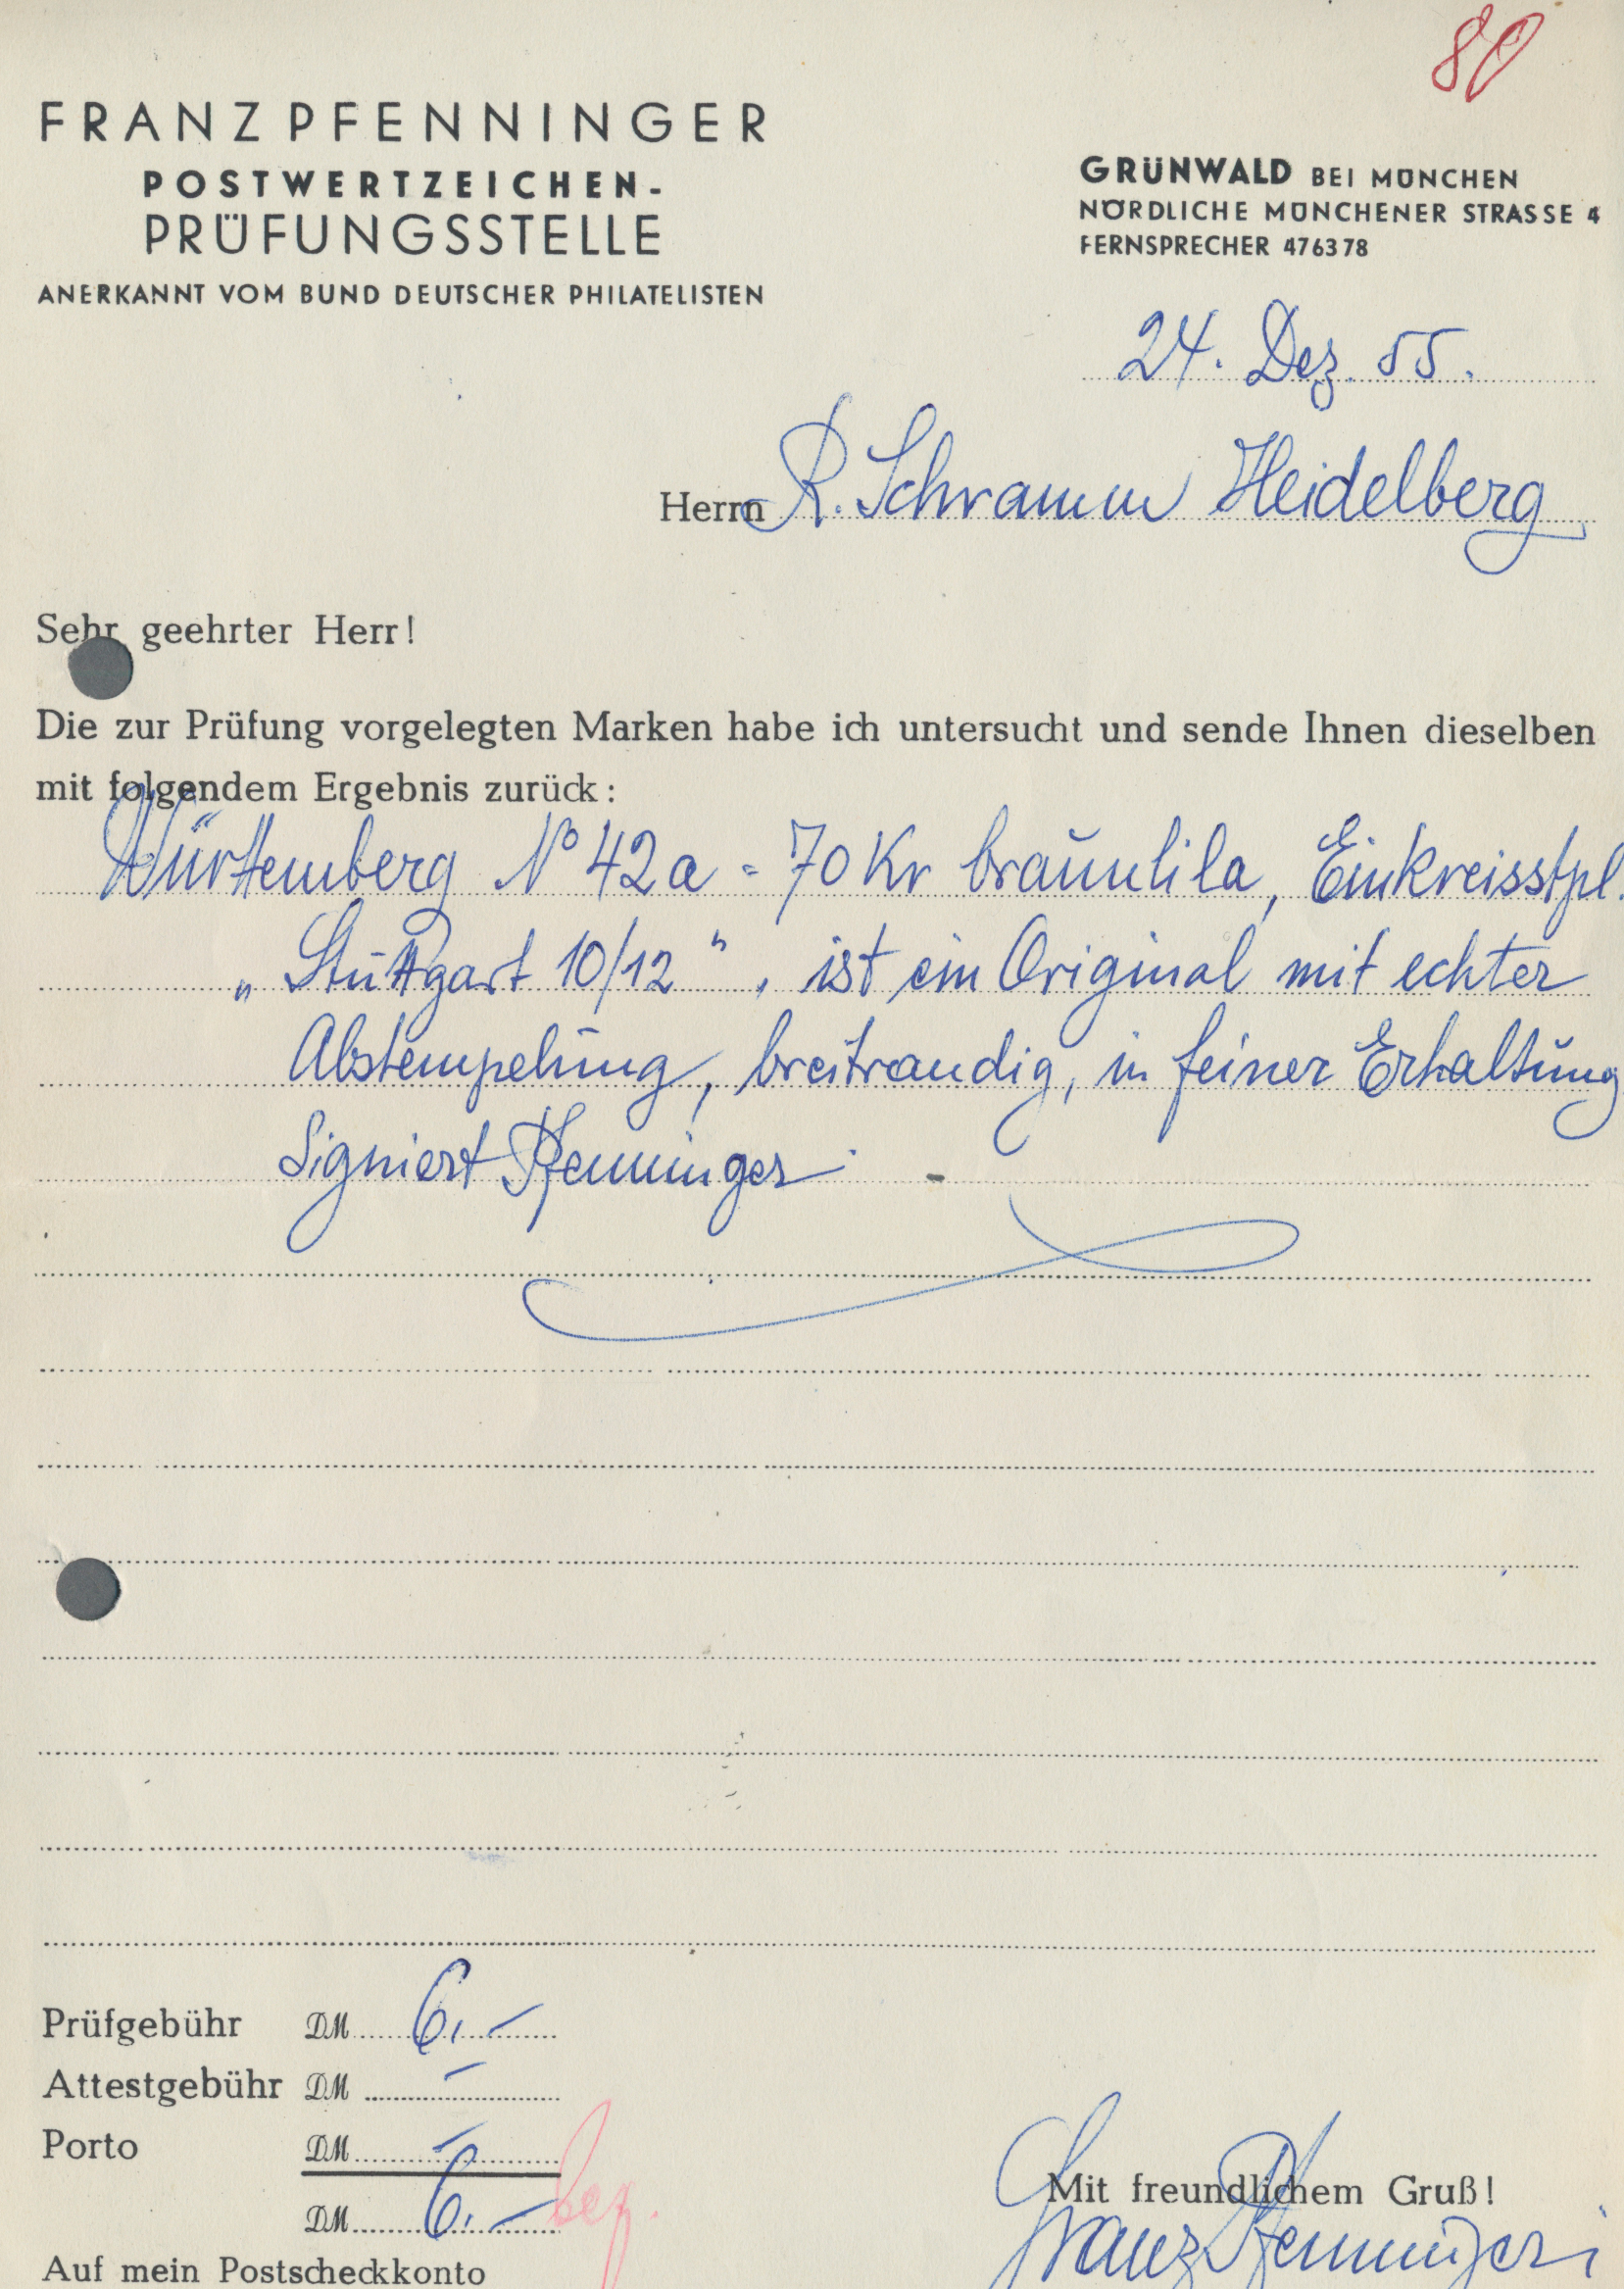 80
FRANZ PFENNINGER
POSTWERTZEICHEN-
PRÜFUNGSSTELLE
ANERKANNT VOM BUND DEUTSCHER PHILATELISTEN
GRÜNWALD BEI MÜNCHEN
NÖRDLICHE MÜNCHENER STRASSE 4
FERNSPRECHER 476378
24. Dez. 55.
Herrn R. Schramm Heidelberg
Sehr geehrter Herr!
Die zur Prüfung vorgelegten Marken habe ich untersucht und sende Ihnen dieselben
mit folgendem Ergebnis zurück:
Württemberg No 42a - 70 Kr braunlila, Einkreisstpl.
„Stuttgart 10/12", ist ein Original mit echter
Abstempelung, breitrandig, in feiner Erhaltung
Signiert Pfenninger.
Prüfgebühr DM 6,-
Attestgebühr DM -
Porto DM -
DM 6,- bez.
Mit freundlichem Gruß!
Franz Pfenninger
Auf mein Postscheckkonto